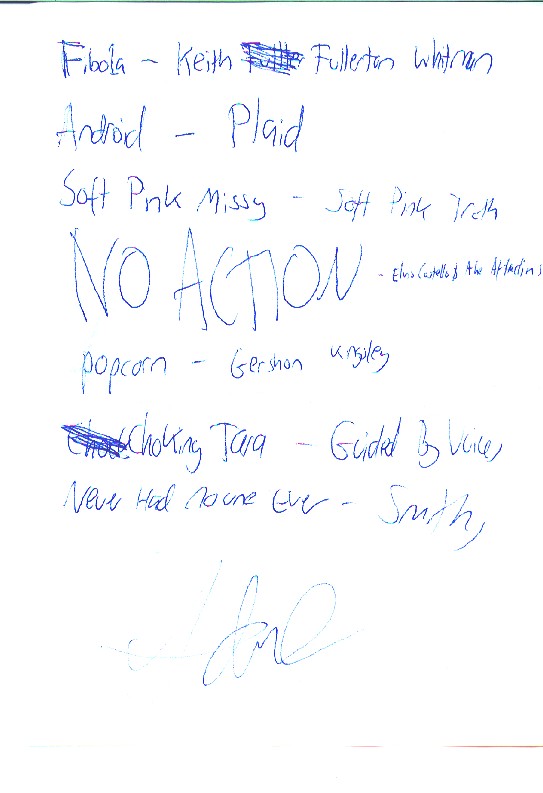 Fibola - Keith Fullerton Whitman
Android - Plaid
Soft Pink Missy - Soft Pink Truth
NO ACTION - Elvis Costello & the Attractions
popcorn - Gershon Kingsley
Choking Tara - Guided By Voices
Never Had No one Ever - Smiths